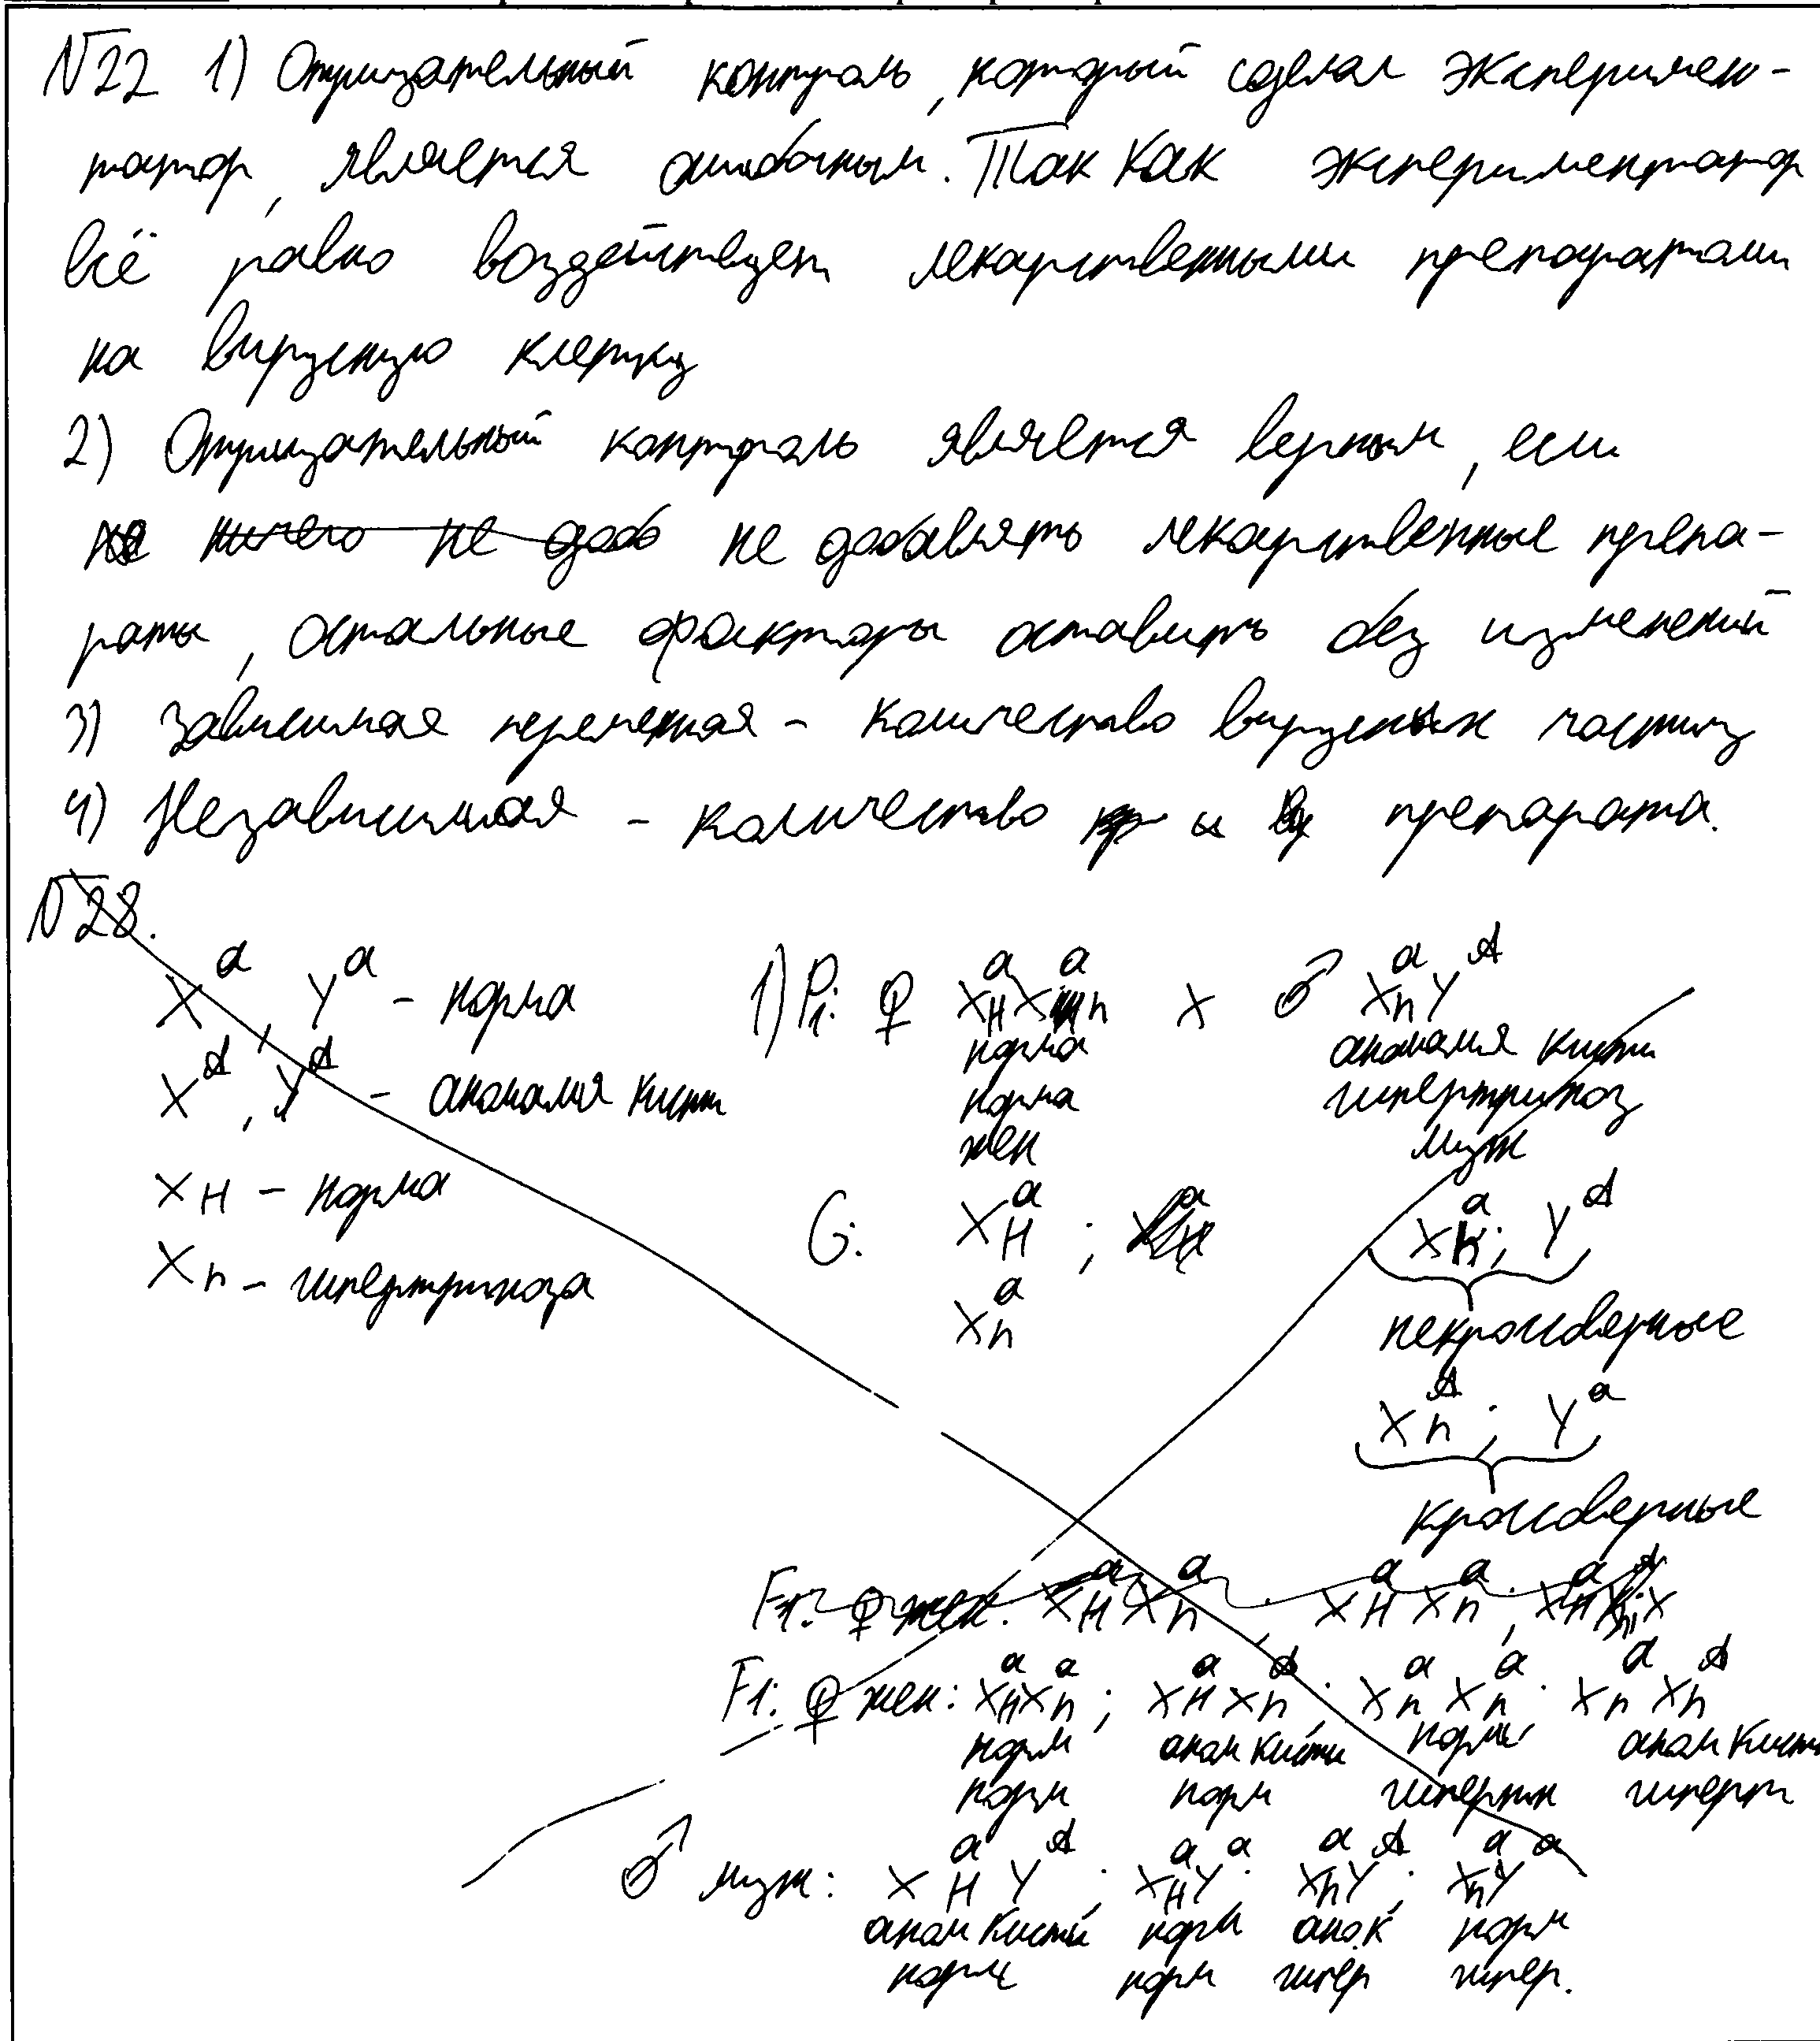 №22 1) Отрицательный контроль, который сделал эксперимен-
татор, является ошибочным. Так как экспериментатор
всё равно воздействует лекарственными препаратами
на вирусную клетку
2) Отрицательный контроль является верным, если
не ничего не доба не добавлять лекарственные препа-
раты, остальные факторы оставить без изменений
3) Зависимая переменная - количество вирусных частиц
4) Независимая - количество препарата.
№28.
X^a, Y^a - норма
X^A, Y^A - аномалия кисти
X_H - норма
X_h - гипертрихоза
1) P1: ♀ X^a_H X^a_h x ♂ X^a_h Y^A
норма аномалия кисти
норма гипертрихоз
жен муж
G: X^a_H ; X^a_h; Y^A
X^a_h некроссоверные
X^A_h ; Y^a
кроссоверные
F1: ♀ жен: X^a_H X^a_h ; X^a_H X^a_h ;
F1: ♀ жен: X^a_H X^a_h ; X^a_H X^A_h ; X^a_h X^a_h ; X^a_h X^A_h
норм аном кисти норм аном кисти
норм норм гипертн гиперт
♂ муж: X^a_H Y^A ; X^a_H Y^a ; X^a_h Y^A ; X^a_h Y^a
аном кисти норм ано.к норм
норм норм гипер гипер.